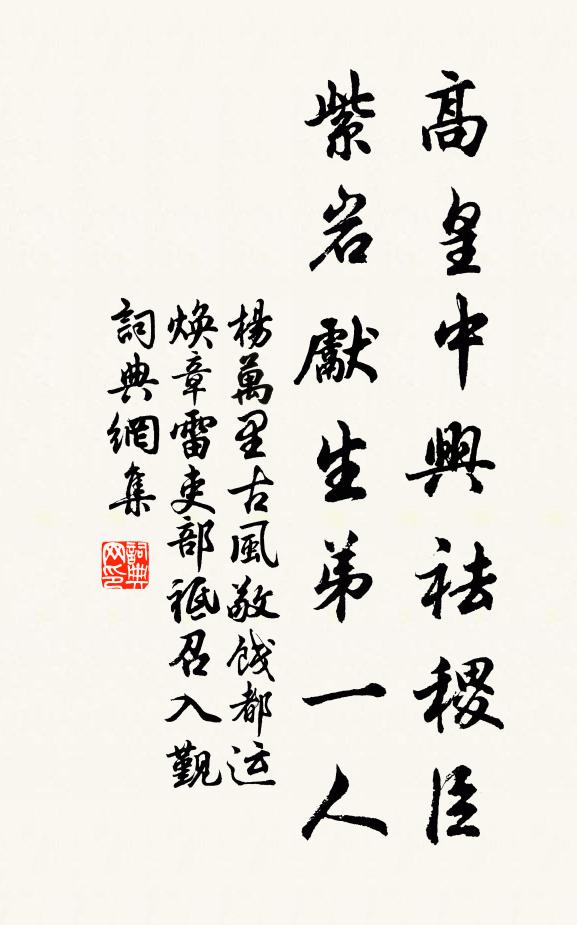 高皇中興袪稷臣
紫岩獻生弟一人
楊萬里古風敬餞都运
煥章雷吏部祗召入觐
詞典網集
詞典网印